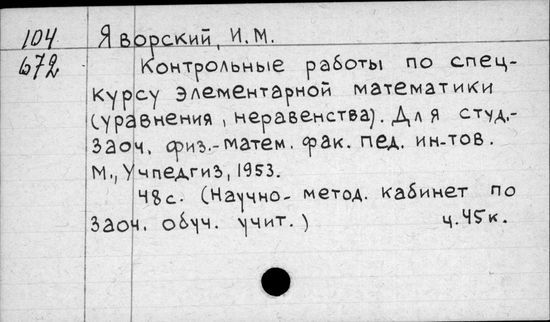 104 Яворский, И.М.
672 Контрольные работы по спец-
курсу элементарной математики
(уравнения, неравенства). Для студ.-
заоч. физ.-матем. фак. пед. ин-тов.
М., Учпедгиз, 1953.
48с. (Научно-метод. кабинет по
заоч. обуч. учит.) ц.45к.